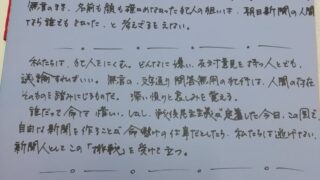 無言のまま、名前も顔も確かめなかった犯人の狙いは、朝日新聞の人間
なら誰でもよかった、と考えざるをえない。
私たちは、犯人をにくむ。どんなに嫌い、反対意見を持つ人とでも、
議論すればいい。無言の、文字通り問答無用の犯行は、人間の存在
そのものを踏みにじるものだ。深い憤りと悲しみを覚える。
誰だって命は惜しい。しかし、戦後民主主義が定着した今日、この国で
自由な新聞を作ることが命懸けの仕事だとしたら、私たちは逃げない。
新聞人としてこの「挑戦」を受けて立つ。